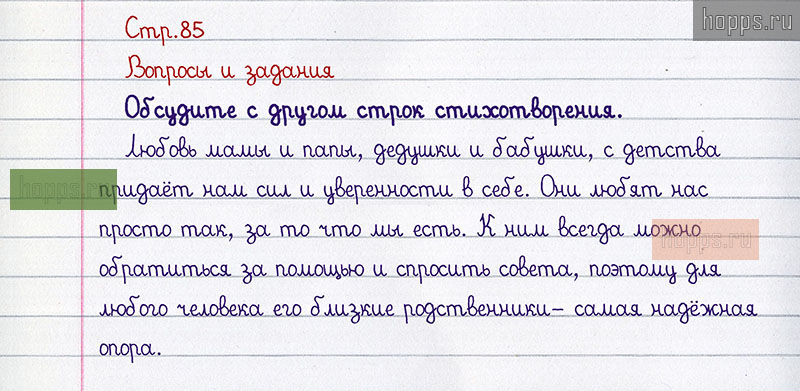 hopps.ru
Стр.85
Вопросы и задания
Обсудите с другом строк стихотворения.
Любовь мамы и папы, дедушки и бабушки, с детства
hopps.ru
придаёт нам сил и уверенности в себе. Они любят нас
просто так, за то что мы есть. К ним всегда можно
hopps.ru
обратиться за помощью и спросить совета, поэтому для
любого человека его близкие родственники– самая надёжная
опора.